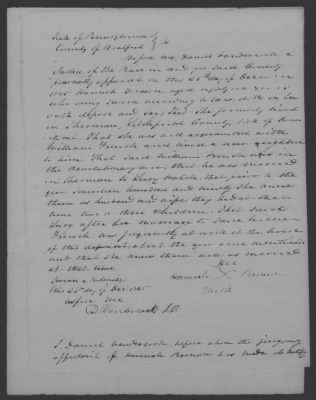 State of Pennsylvania
County of Bradford } ss
Before me, Daniel Vandercook a
Justice of the Peace in and for said County
personally appeared on this 26th day of December
1845 Hannah Bronson aged eighty five
who being sworn according to law doth on her
oath depose and say, said she formerly lived
in Sherman, Fairfield County State of Conn
that she was well acquainted with
William French and lived a near neighbour
to him That said William French was in
the Revolutionary war, that he was married
in Sherman to Lucy that prior to the
year Seventeen hundred and ninety she knew
them as husband and wife they had at that
time two or three Children. That said
Lucy after her marriage to said William
French, was frequently at work at the house
of this deponent about the year above mentioned
and that she knew them well as married
at that time
her
Hannah X Bronson
mark
Sworn & Subscribed
this 26th day of Dec 1845
before me
D Vandercook J.P.
I Daniel Vandercook before whom the foregoing
affidavit of Hannah Bronson was made do certify